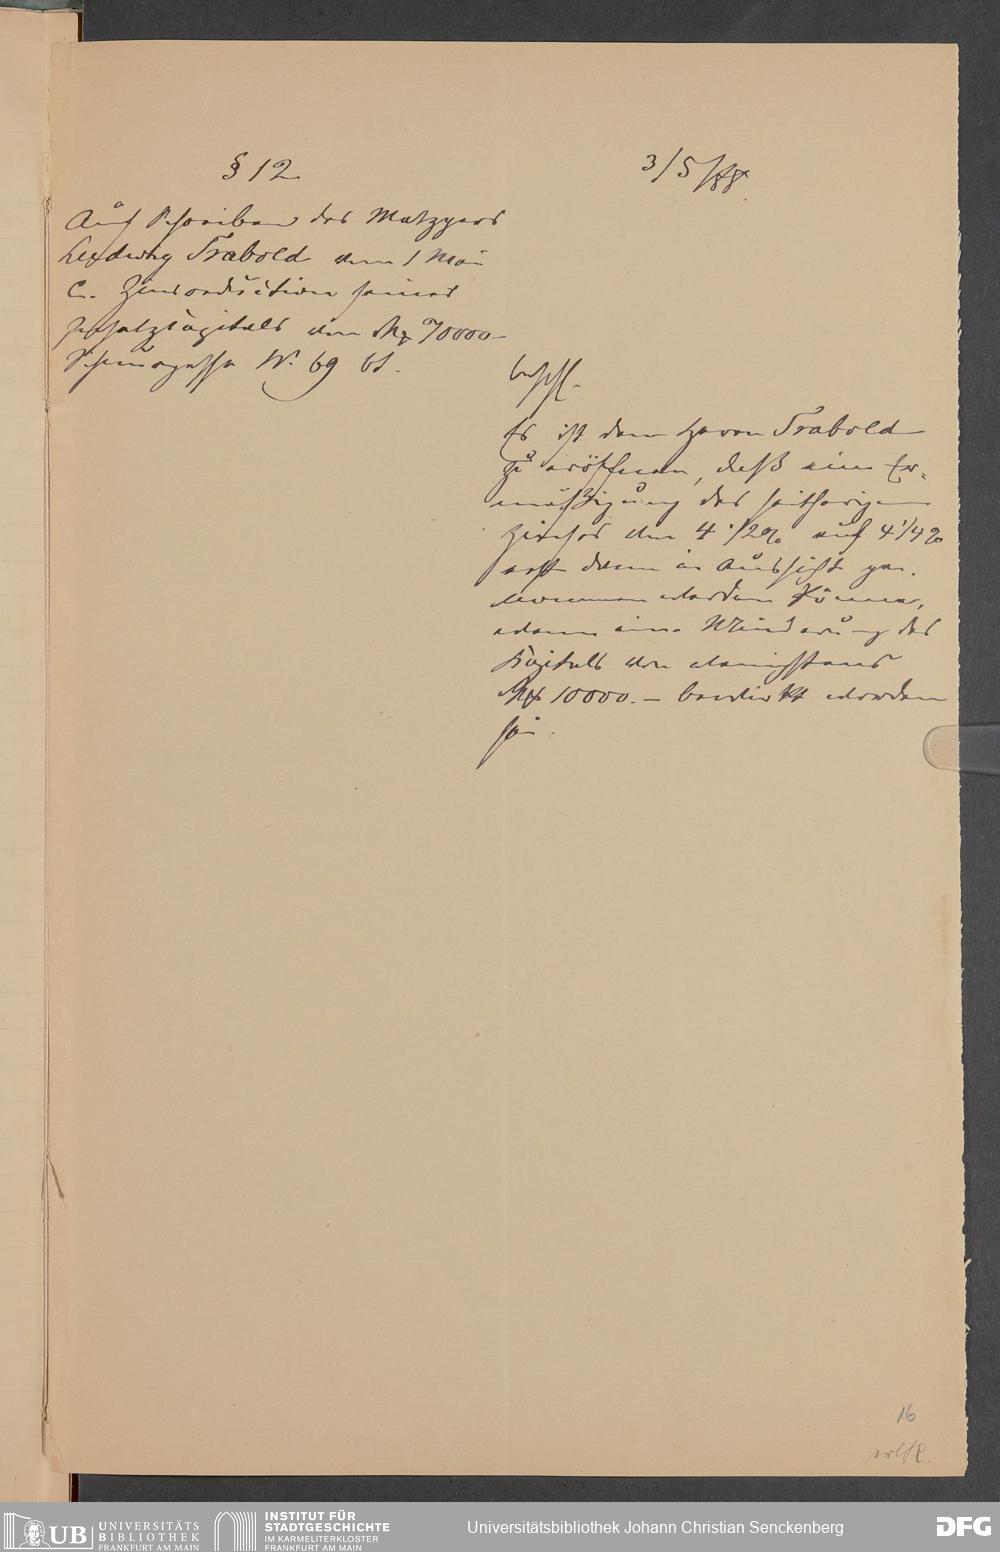 § 12
3/5/88
Auf Schreiben des Metzgers
Ludwig Trabold vom 1 Mai
c. Zinsreduction seines
Insatzkapitals von Mk 70000-
Schnurgasse N. 69
beschl.
Es ist dem Herrn Trabold
zu eröffnen, daß eine Er-
mäßigung des seitherigen
Zinses von 4 1/2% auf 4 1/4%
erst dann in Aussicht ge-
nommen werden könne,
wenn eine Minderung des
Kapitals von wenigstens
Mk 10000.- bewirkt worden
sei.
16
UB UNIVERSITÄTS
BIBLIOTHEK
FRANKFURT AM MAIN
INSTITUT FÜR
STADTGESCHICHTE
IM KARMELITERKLOSTER
FRANKFURT AM MAIN
Universitätsbibliothek Johann Christian Senckenberg
DFG